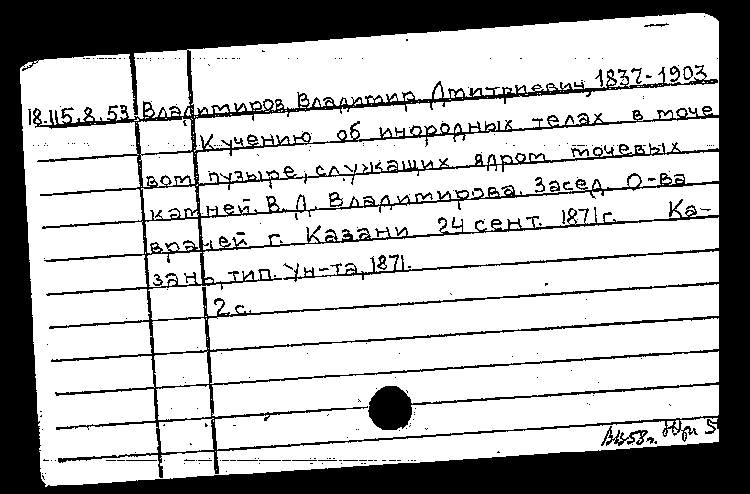 18.115.8.53 Владимиров, Владимир Дмитриевич, 1837-1903
К учению об инородных телах в моче
вом пузыре, служащих ядром мочевых
камней. В. Д. Владимирова. Засед. О-ва
врачей г. Казани 24 сент. 1871 г. Ка-
зань, тип. Ун-та, 1871.
2 с.